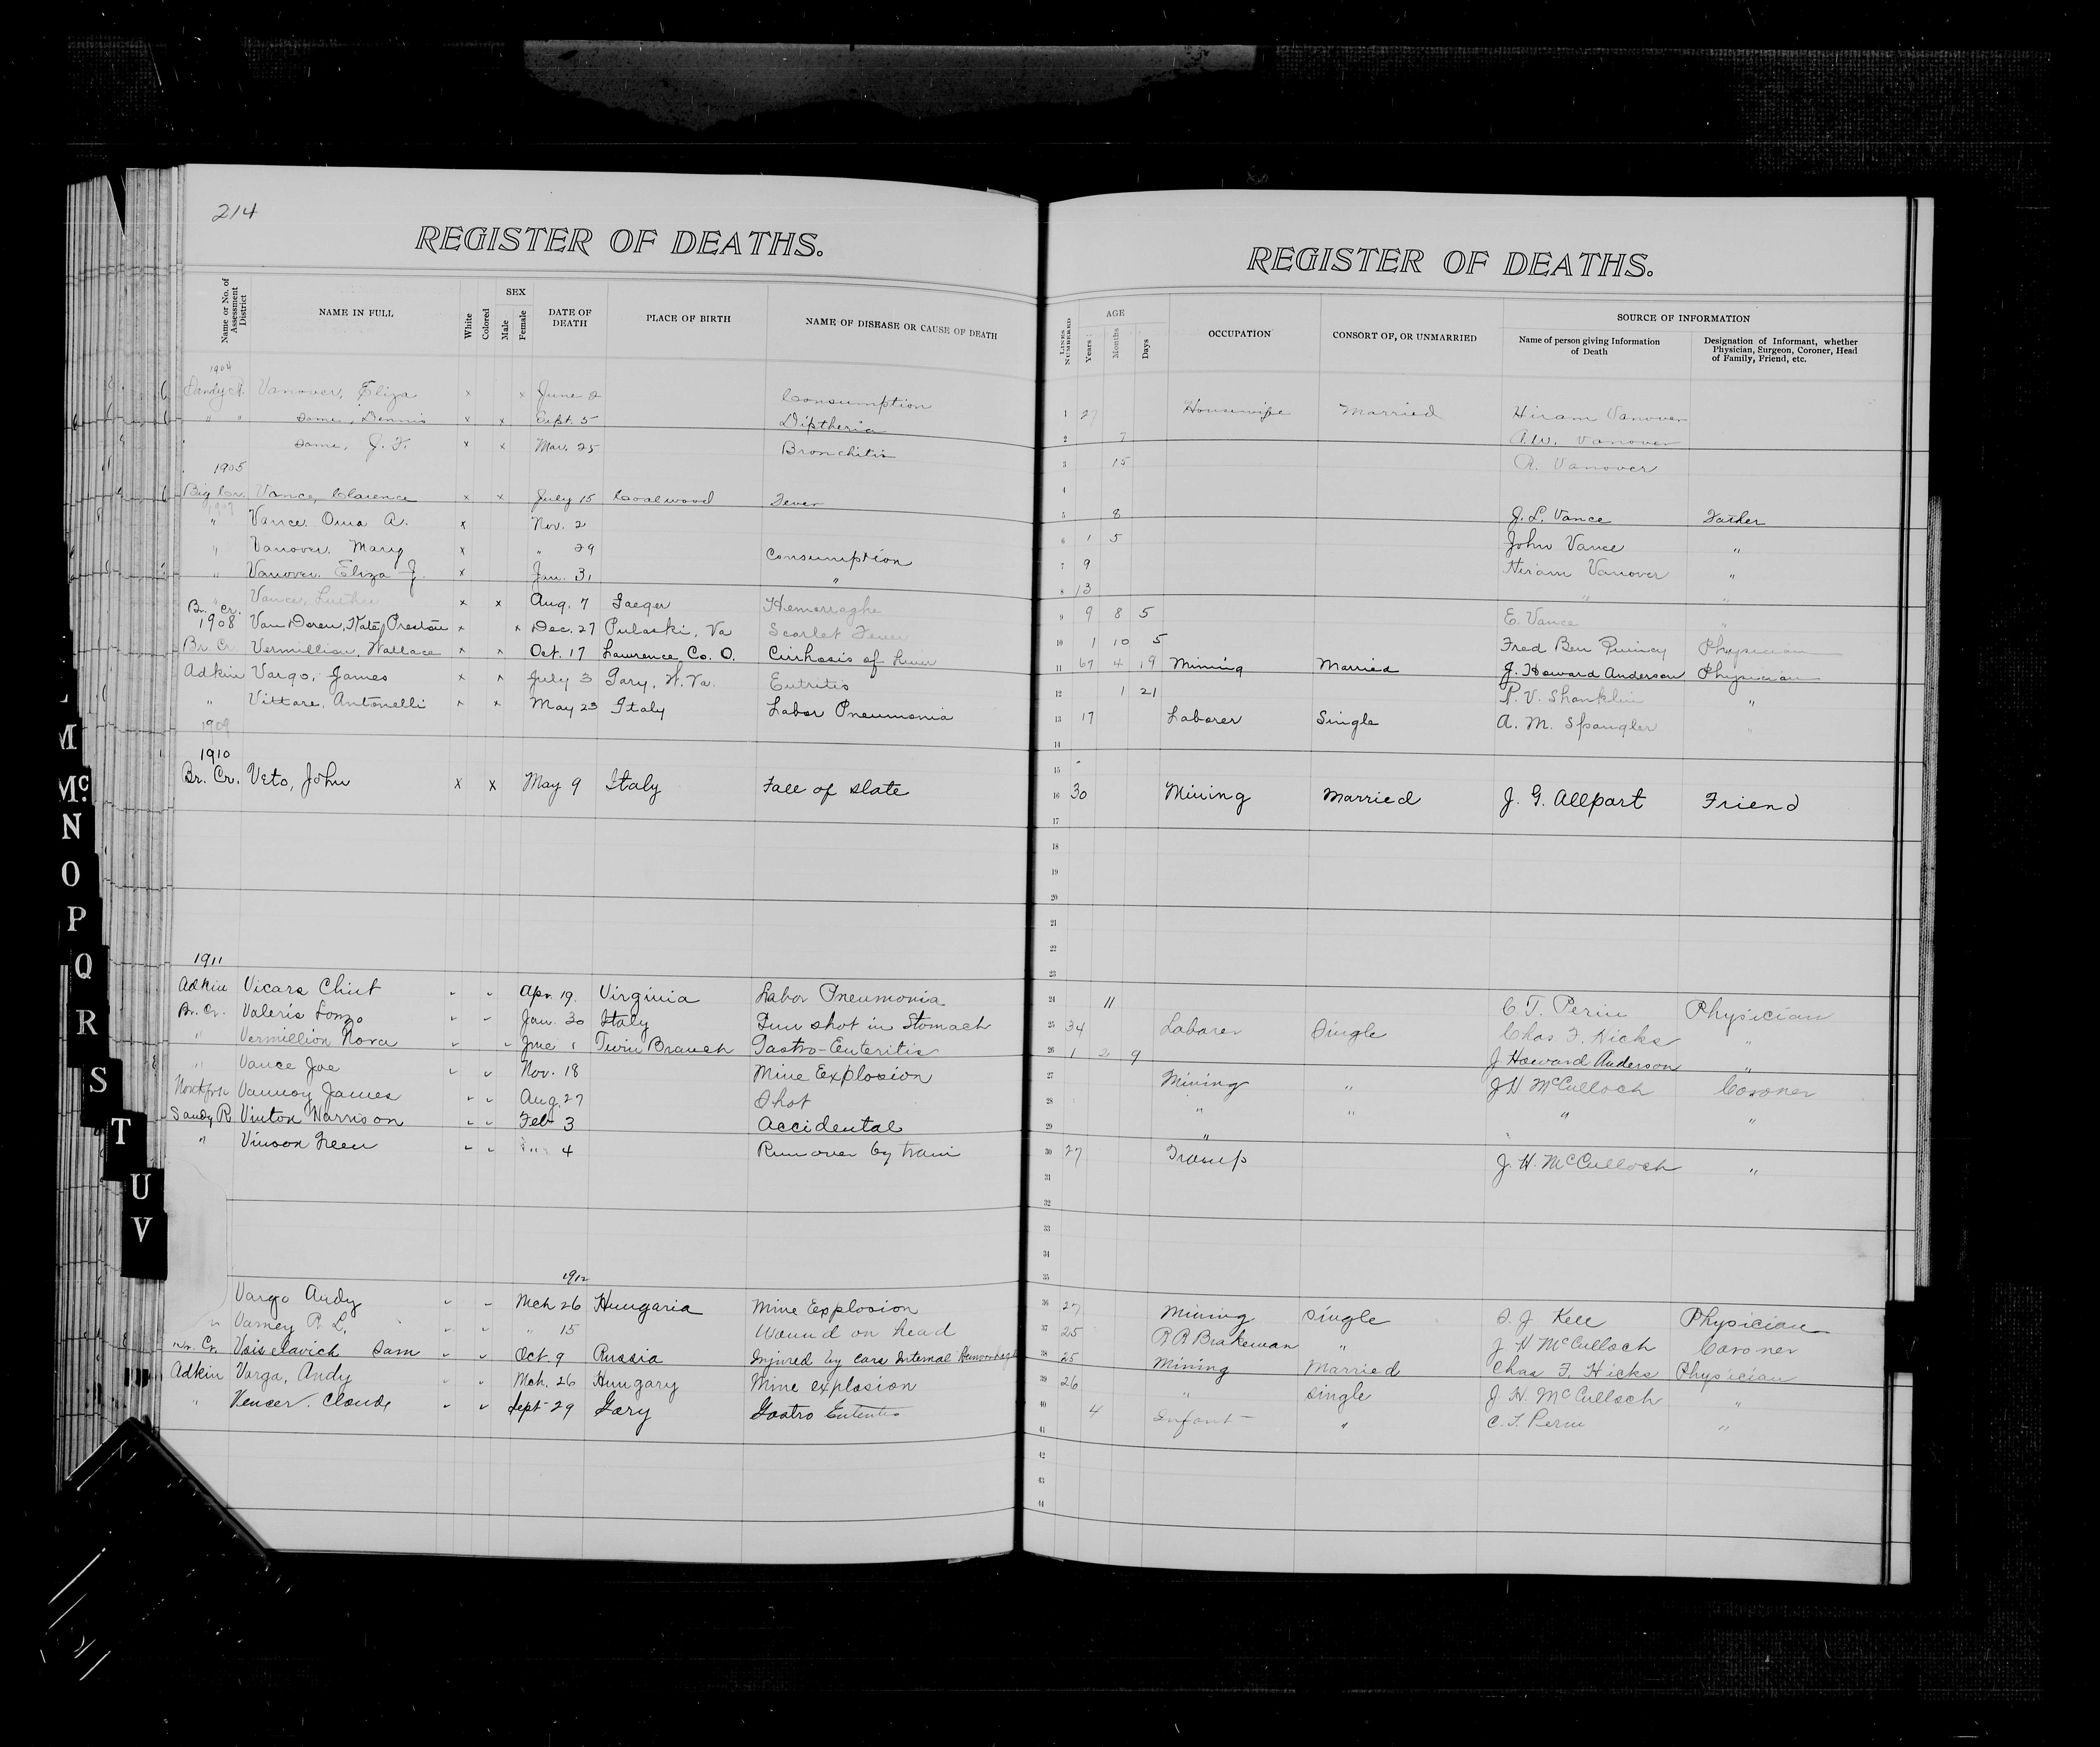 214
REGISTER OF DEATHS.
Name or No. of Assessment District
NAME IN FULL
White
Colored
SEX
Male
Female
DATE OF DEATH
PLACE OF BIRTH
NAME OF DISEASE OR CAUSE OF DEATH
1904
Sandy R. Vanover, Eliza x x June 2 Consumption
" " same, Dennis x x Sept. 5 Diptheria
same, J. F. x x Mar. 25 Bronchitis
1905
Big Cr. Vance, Clarence x x July 15 Coalwood Fever
1907
" Vance, Oma A. x Nov. 2
" Vanover, Mary x " 29 Consumption
" Vanover, Eliza J. x Jan. 31 "
" Vance, Luther x x Aug. 7 Iaeger Hemorraghe
Br. Cr.
1908 Van Doren, Kate Preston x x Dec. 27 Pulaski, Va Scarlet Fever
Br. Cr Vermillion, Wallace x x Oct. 17 Lawrence Co. O. Cirrhosis of Liver
Adkin Vargo, James x x July 3 Gary, W. Va. Entritis
" Vittare, Antonelli x x May 23 Italy Labor Pneumonia
1909
1910
Br. Cr. Veto, John x x May 9 Italy Fall of slate
1911
Adkin Vicars Chint Apr. 19. Virginia Labor Pneumonia
Br. Cr. Valeris Lonzo Jan. 30 Italy Gun shot in Stomach
" Vermillion Nora June 1 Twin Branch Gastro-Enteritis
" Vance Joe Nov. 18 Mine Explosion
Northfork Vannoy James Aug. 27 Shot
Sandy R Vinton Harrison Feb 3 Accidental
" Vinson Green " 4 Run over by train
1912
Vargo Andy Mch 26 Hungaria Mine Explosion
" Varney P. L. " 15 Wound on head
Br. Cr. Voiselavich Sam Oct. 9 Russia Injured by cars Internal
Adkin Varga, Andy Mch. 26 Hungary Mine explosion
" Vencer. Claude Sept 29 Gary Gastro
M
Mc
N
O
P
Q
R
S
T
U
V
REGISTER OF DEATHS.
LINES NUMBERED
AGE
Years
Months
Days
OCCUPATION
CONSORT OF, OR UNMARRIED
SOURCE OF INFORMATION
Name of person giving Information of Death
Designation of Informant, whether Physician, Surgeon, Coroner, Head of Family, Friend, etc.
1 27 Housewife Married Hiram Vanover
2 7 A.W. Vanover
3 15 A. Vanover
4
5 8 J. L. Vance Father
6 1 5 John Vance "
7 9 Hiram Vanover "
8 13 " "
9 9 8 5 E. Vance "
10 1 10 5 Fred Ben Physician
11 67 4 19 Mining Married J. Howard Anderson Physician
12 1 21 P. V. Shanklin "
13 17 Laborer Single A. M. Spangler "
14
15
16 30 Mining Married J. G. Allpart Friend
17
18
19
20
21
22
23
24 11 C. T. Perin Physician
25 34 Laborer Single Chas F. Hicks "
26 1 2 9 J. Howard Anderson "
27 Mining " J H McCulloch Coroner
28 " " " "
29 "
30 27 Tramp J. H. McCulloch "
31
32
33
34
35
36 27 Mining Single Physician
37 25 R R Brakeman " J H McCulloch Coroner
38 25 Mining Married Chas F. Hicks Physician
39 26 " Single J. H. McCulloch "
40 4 Infant " C. T. Perin "
41
42
43
44